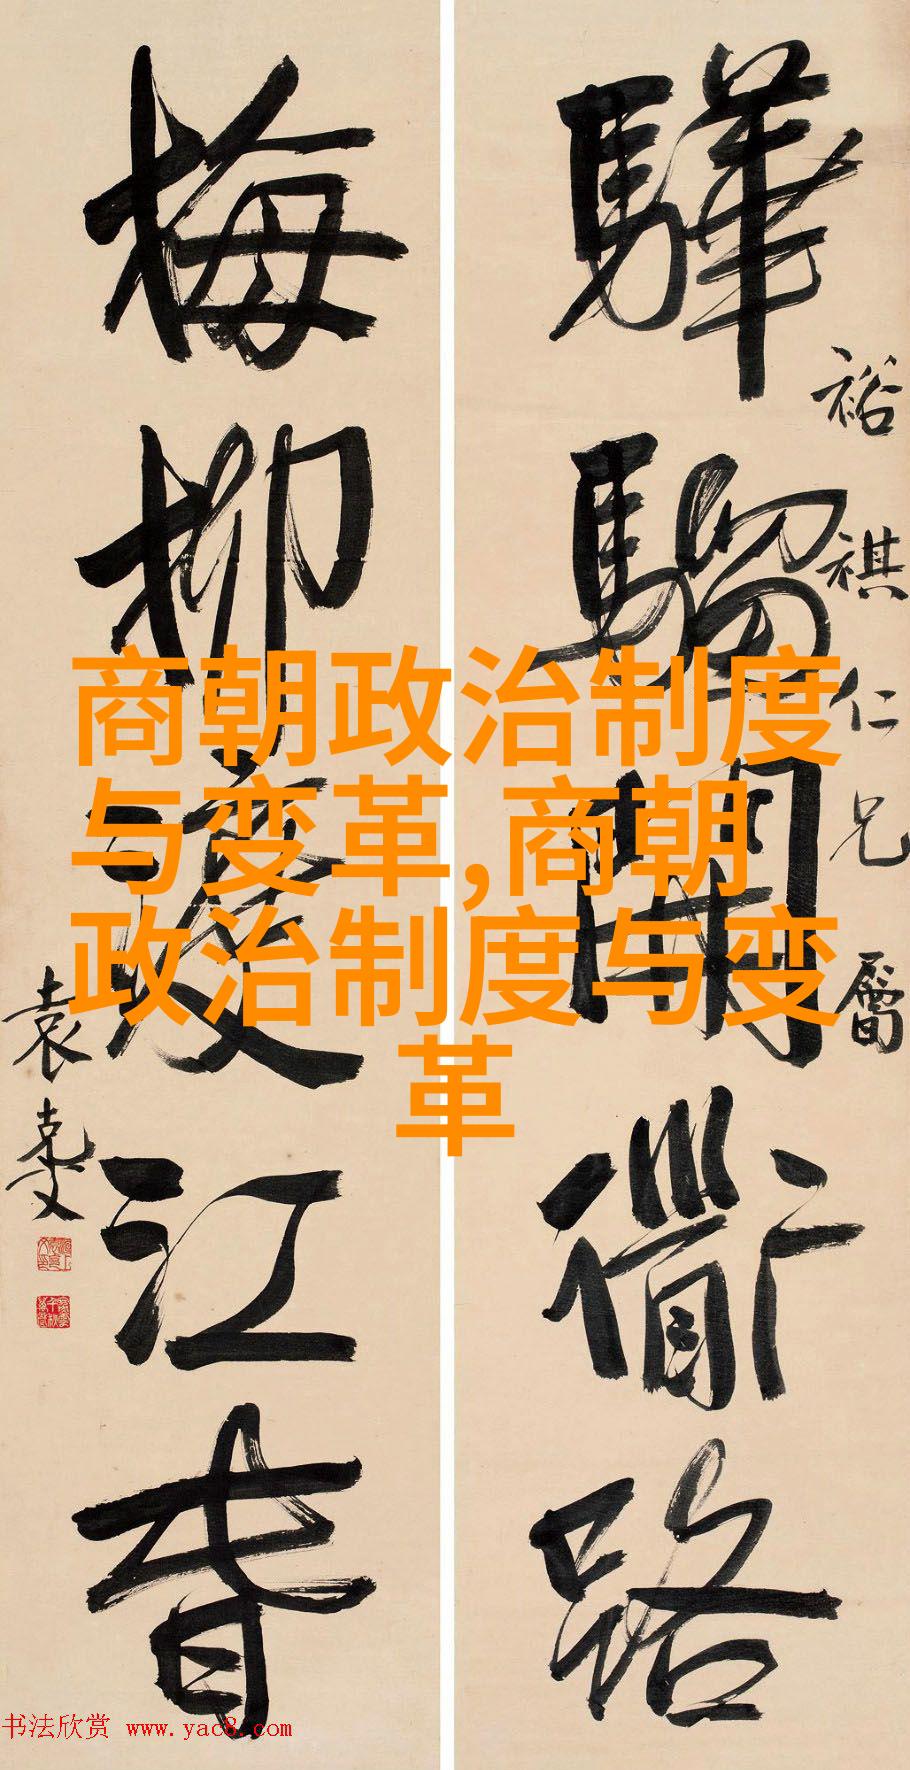 驊騮開衜路
裕祺仁兄屬
梅柳渡江春
袁克文
商朝政治制度
与变革,商朝
政治制度与变
革
书法欣赏 www.yac8.com